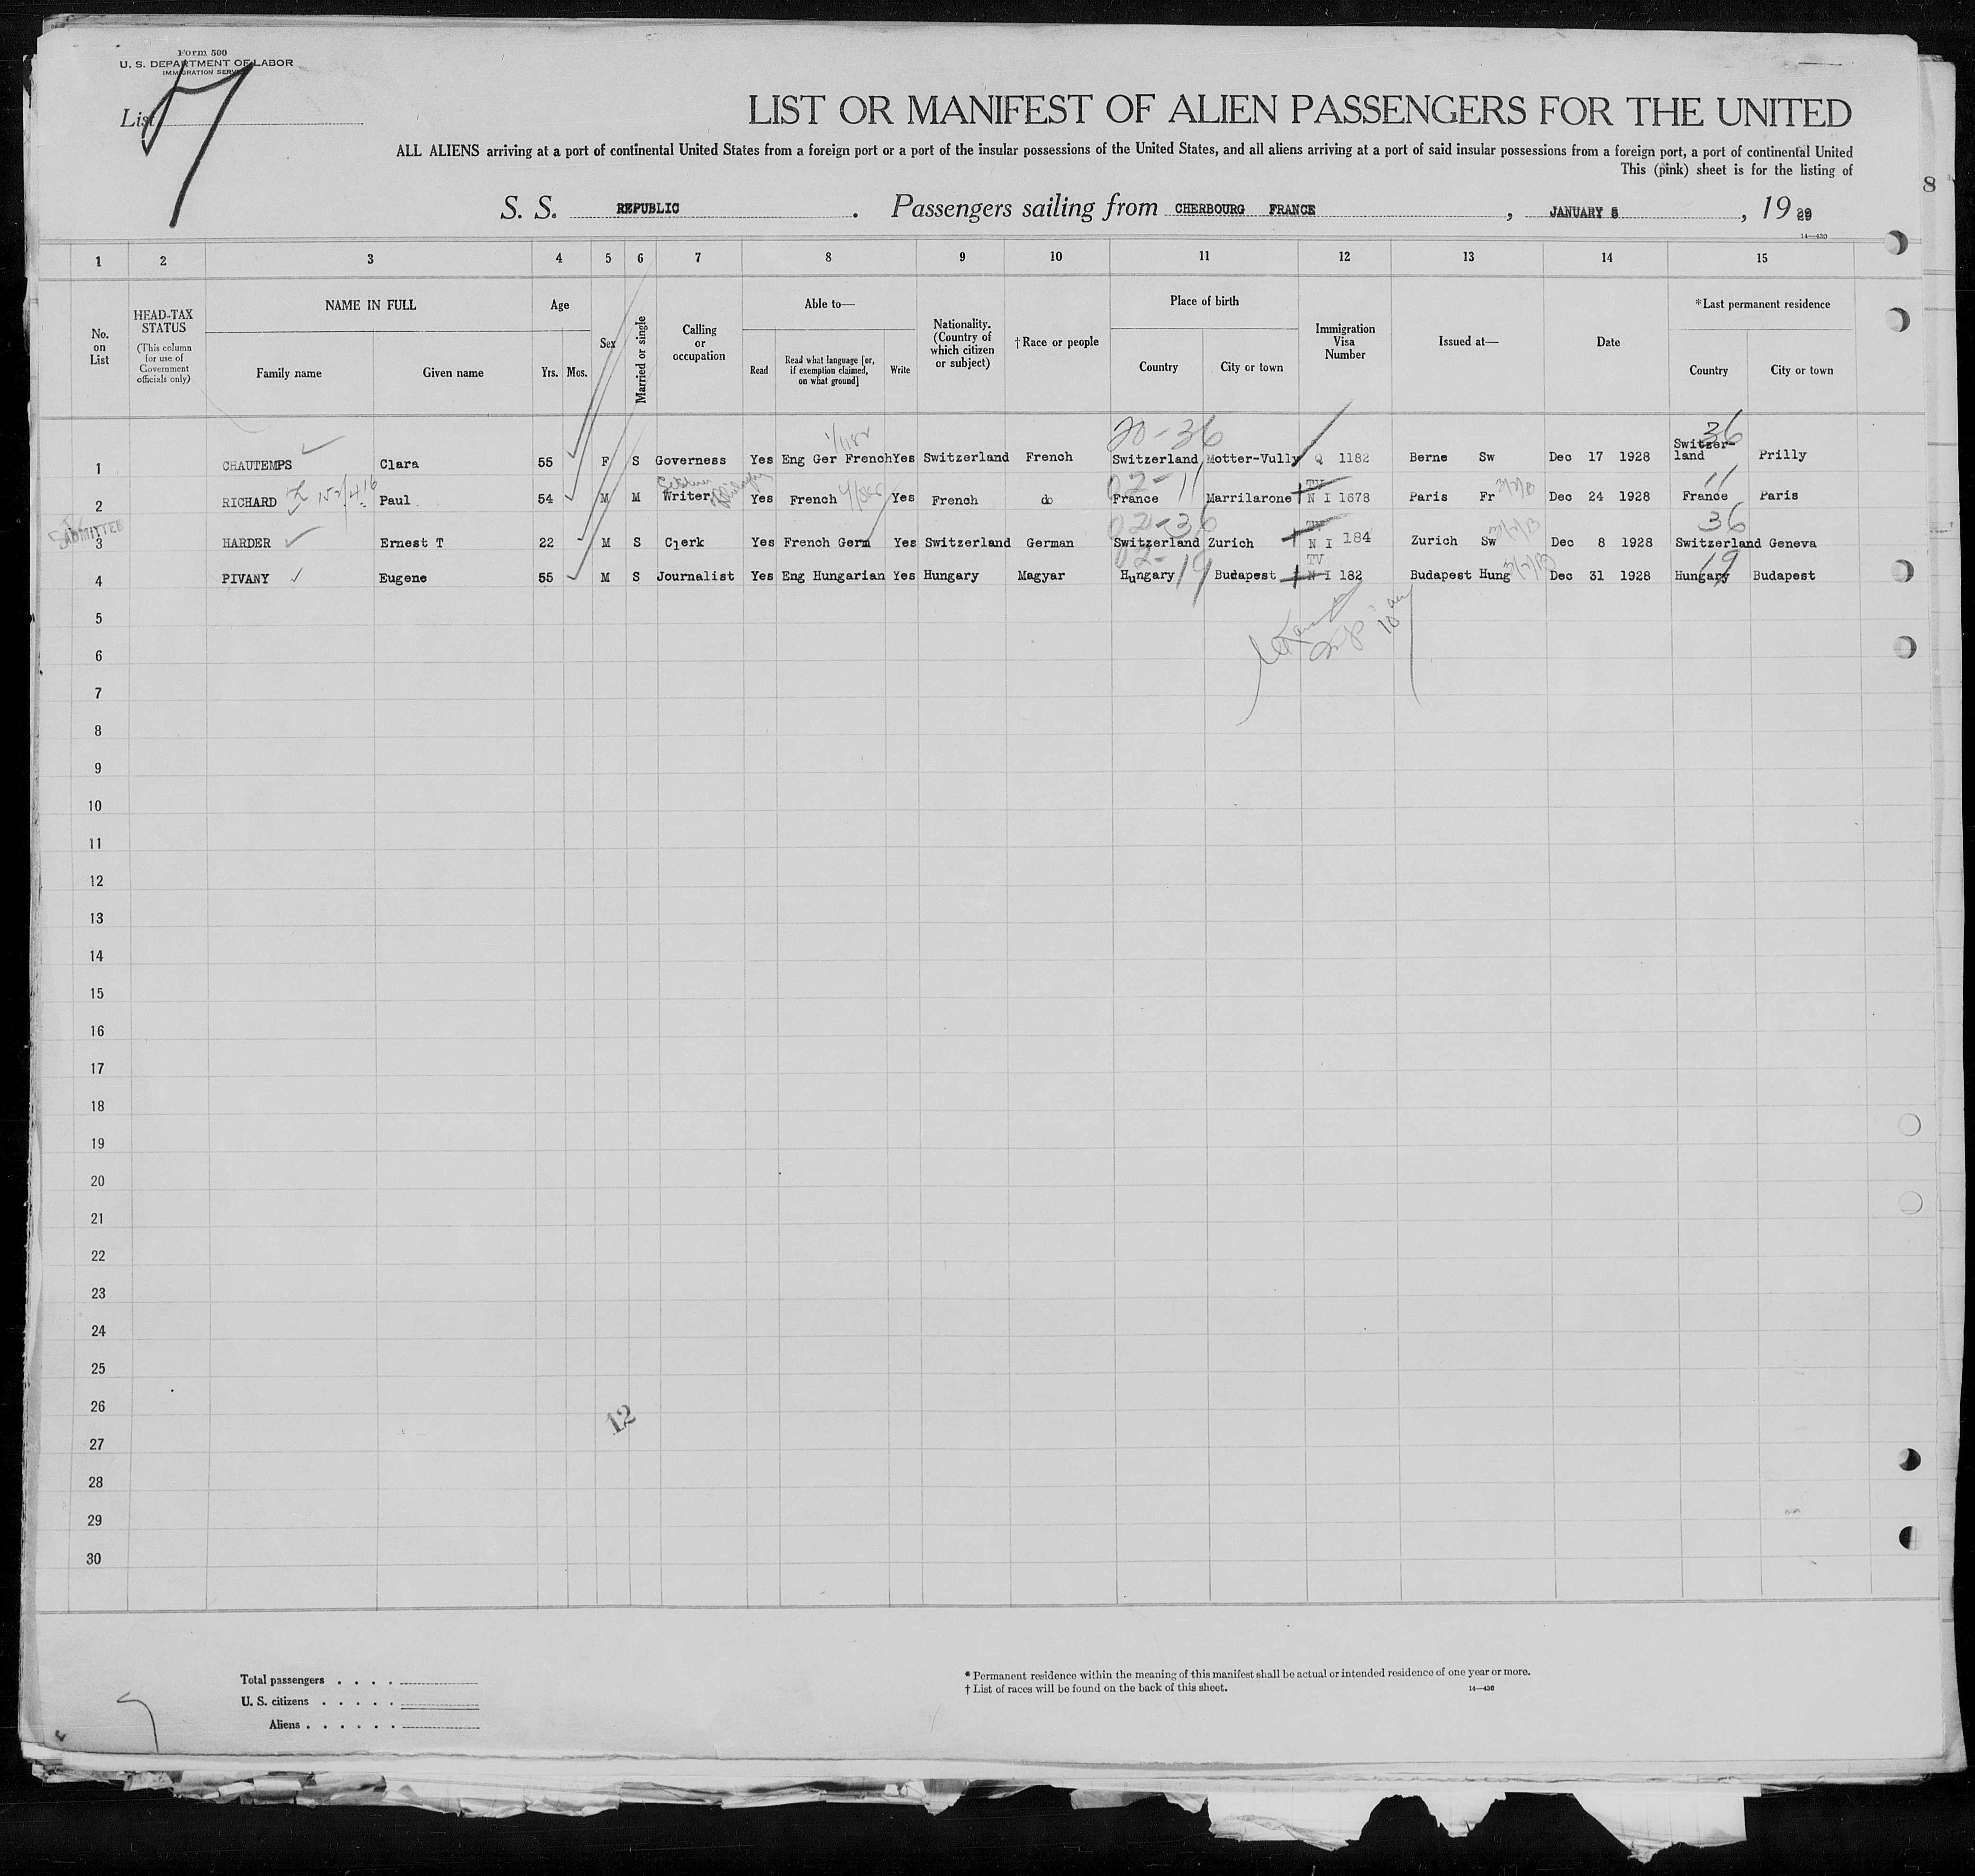 Form 500
U. S. DEPARTMENT OF LABOR
IMMIGRATION SERVICE
List
LIST OR MANIFEST OF ALIEN PASSENGERS FOR THE UNITED
ALL ALIENS arriving at a port of continental United States from a foreign port or a port of the insular possessions of the United States, and all aliens arriving at a port of said insular possessions from a foreign port, a port of continental United
This (pink) sheet is for the listing of
8
S. S. REPUBLIC . Passengers sailing from CHERBOURG FRANCE , JANUARY 5 , 19 29
14—430
1 2 3 4 5 6 7 8 9 10 11 12 13 14 15
No. on List
HEAD-TAX STATUS
(This column for use of Government officials only)
NAME IN FULL
Family name Given name
Age
Yrs. Mos.
Sex
Married or single
Calling or occupation
Able to—
Read
Read what language [or, if exemption claimed, on what ground]
Write
Nationality. (Country of which citizen or subject)
† Race or people
Place of birth
Country City or town
Immigration Visa Number
Issued at—
Date
* Last permanent residence
Country City or town
20-36 36
1 CHAUTEMPS Clara 55 F S Governess Yes Eng Ger French Yes Switzerland French Switzerland Motter-Vully Q 1182 Berne Sw Dec 17 1928 Switzer-land Prilly
02- 11 TV 11
2 RICHARD Paul 54 M M Writer Yes French Yes French do France Marrilarone N I 1678 Paris Fr Dec 24 1928 France Paris
ADMITTED
02-36 TV 36
3 HARDER Ernest T 22 M S Clerk Yes French Germ Yes Switzerland German Switzerland Zurich N I 184 Zurich Sw Dec 8 1928 Switzerland Geneva
02- 19 TV 19
4 PIVANY Eugene 55 M S Journalist Yes Eng Hungarian Yes Hungary Magyar Hungary Budapest N I 182 Budapest Hung Dec 31 1928 Hungary Budapest
5
6
7
8
9
10
11
12
13
14
15
16
17
18
19
20
21
22
23
24
25
26
12
27
28
29
30
Total passengers . . . .
U. S. citizens . . . . .
Aliens . . . . . .
* Permanent residence within the meaning of this manifest shall be actual or intended residence of one year or more.
† List of races will be found on the back of this sheet.
14—430